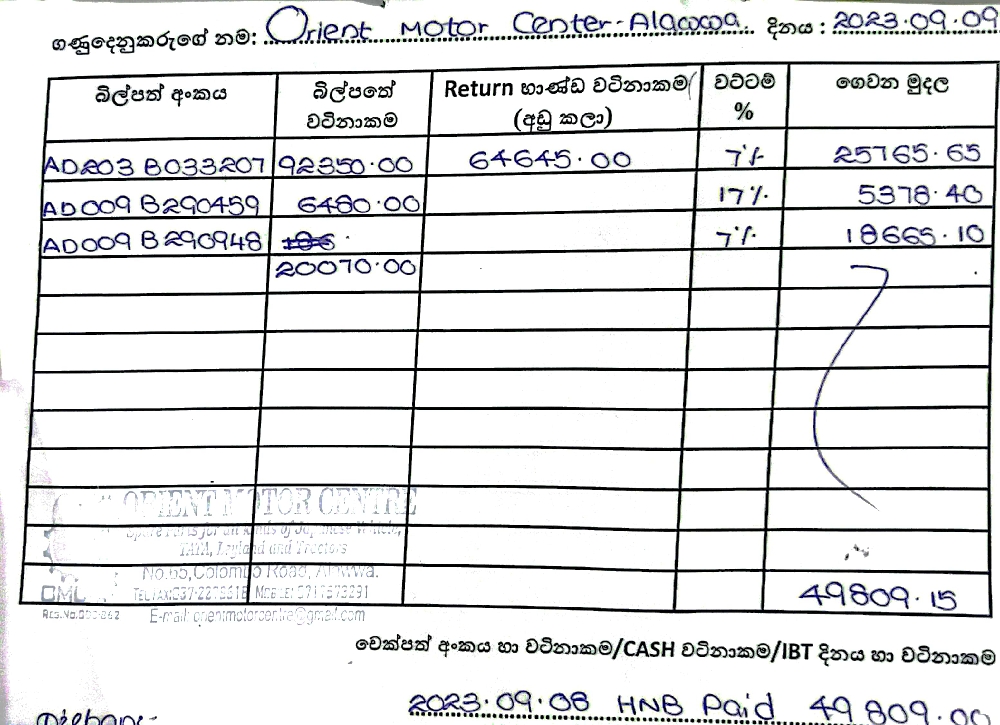 ගණුදෙනුකරුගේ නම: Orient Motor Center-Alawwa දිනය : 2023.09.09
බිල්පත් අංකය බිල්පතේ වටිනාකම Return භාණ්ඩ වටිනාකම (අඩු කලා) වට්ටම් % ගෙවන මුදල
AD203 B033207 92350.00 64645.00 7% 25765.65
AD009 B290459 6480.00 17% 5378.40
AD009 B290948 7% 18665.10
20070.00
ORIENT MOTOR CENTRE
Spare Parts for all kinds of Japanese Vehicle,
TATA, Leyland and Tractors
No.65,Colombo Road, Alawwa.
49809.15
OMC
E-mail: orientmotorcentre@gmail.com
චෙක්පත් අංකය හා වටිනාකම/CASH වටිනාකම/IBT දිනය හා වටිනාකම
2023.09.08 HNB Paid 49809.00